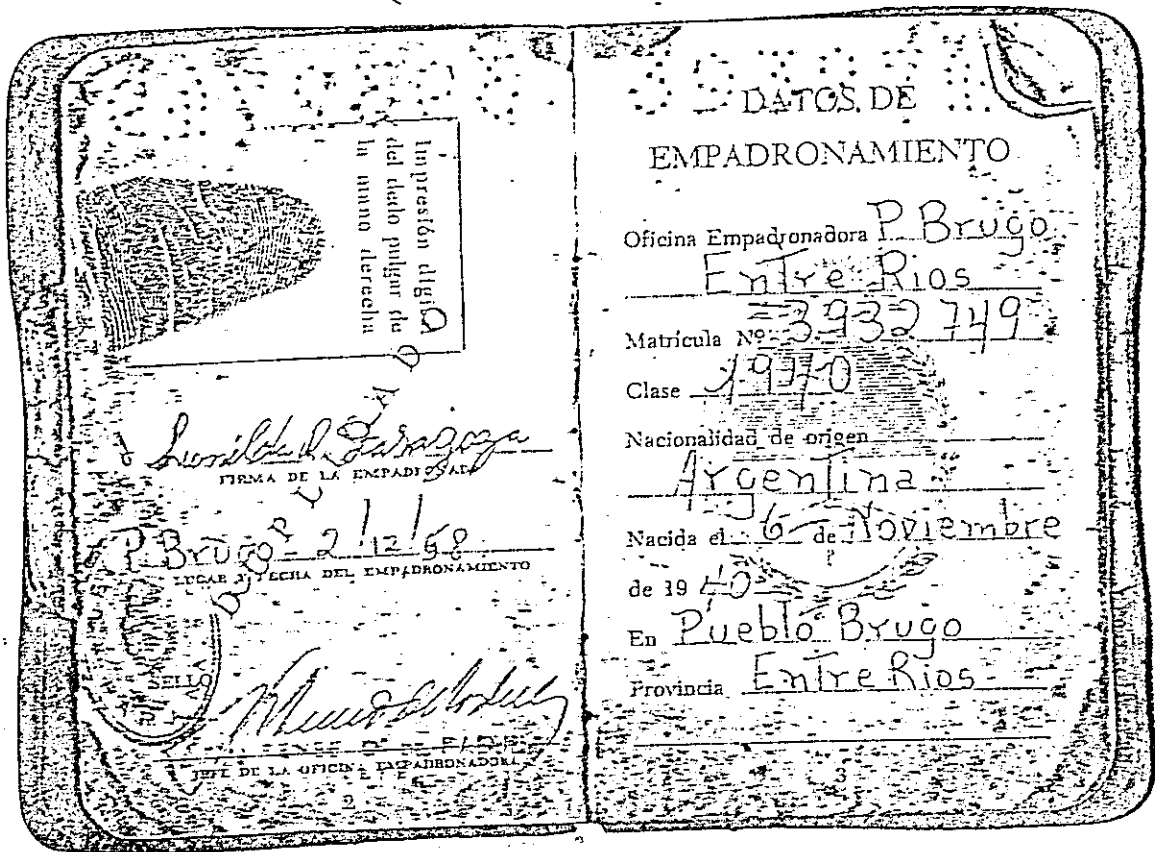 Impresión digital
del dedo pulgar de
la mano derecha
Zaragoza
FIRMA DE LA EMPADRONADA
P. Brugo - 2/12/58
LUGAR Y FECHA DEL EMPADRONAMIENTO
DUPLICADO
SELLO
JEFE DE LA OFICINA EMPADRONADORA
2
DATOS DE
EMPADRONAMIENTO
Oficina Empadronadora P. Brugo
Entre Rios
Matrícula Nº 3932749
Clase 1940
Nacionalidad de origen
Argentina
Nacida el 6 de Noviembre
de 1940
En Pueblo Brugo
Provincia Entre Rios
3